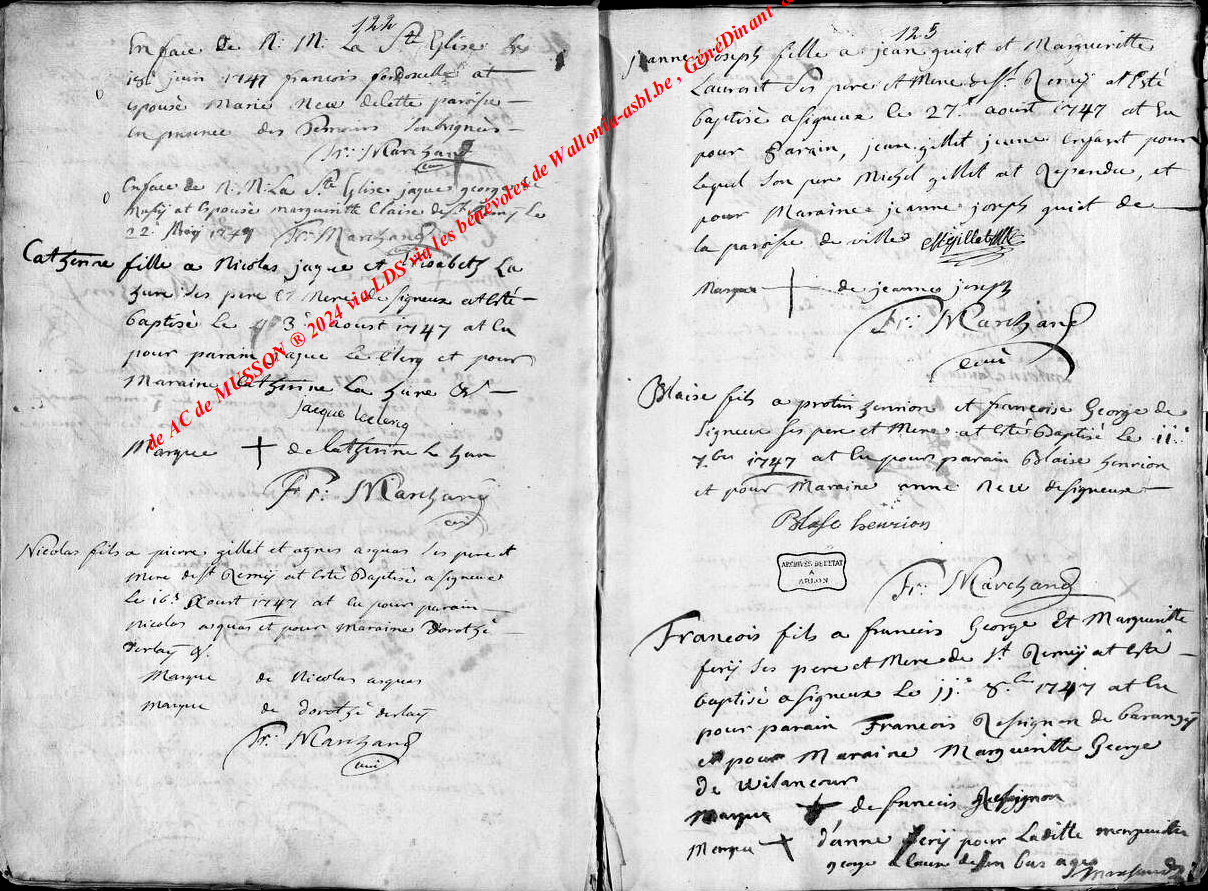 122
En face de N: M: La Ste Eglise le
18e juin 1747 francois at
epousé Marie New de cette paroisse
en presence des temoins
Fr: Marchand
curé
En face de N: M: La Ste Eglise jaque george de
at Epousé margueritte Claise de St Remy Le
22e May 1749 Fr: Marchand
Catherine fille a Nicolas jaque et Elisabeth La
hure ses pere et Mere de signeux at Esté
baptisé Le 3e aoust 1747 at Eu
pour parain jaque Le Clerq et pour
Maraine Catherine La hure &
jacque leclerq
Marque + de Catherine la hure
Fr: Marchand
curé
Nicolas fils a pierre gillet et agnes asquas ses pere et
Mere de st Remÿ at Esté Baptisé a signeux
Le 16e Aoust 1747 at Eu pour parain
Nicolas asquas et pour Maraine Dorothé
Derlaÿ &
Marque de Nicolas asquas
Marque de dorothé derlaÿ
Fr: Marchand
curé
123
jeanne joseph fille a jean guiot et Margueritte
Laurant ses pere et Mere de St Remÿ at Esté
baptisé a signeux le 27e aoust 1747 at Eu
pour Parain, jean gillet jeune Enfant pour
lequel son pere Michel gillet at Repondu, et
pour Maraine jeanne joseph guiot de
la paroise de ville
Marque + de jeanne joseph
Fr: Marchand
curé
Blaise fils a protin henrion et francoise George de
signeux ses pere et Mere at Esté Baptisé Le 11e
7bre 1747 at Eu pour parain Blaise henrion
et pour Maraine anne New de signeux
Blase henrion
ARCHIVES DE L'ETAT
A
ARLON
Fr: Marchand
Francois fils a francois George Et Margueritte
feriÿ ses pere et Mere de St Remÿ at Esté
baptisé a signeux Le 11e 8bre 1747 at Eu
pour parain Francois Rossignon de baranzÿ
et pour Maraine Margueritte George
de Wilancour
Marque + de francois Rossignon
Marque + d'anne feriÿ pour Ladille margueritte
george a cause de son bas age Marchand
de AC de MUSSON ® 2024 via LDS via les bénévoles de Wallonia-asbl.be , GénéDinant